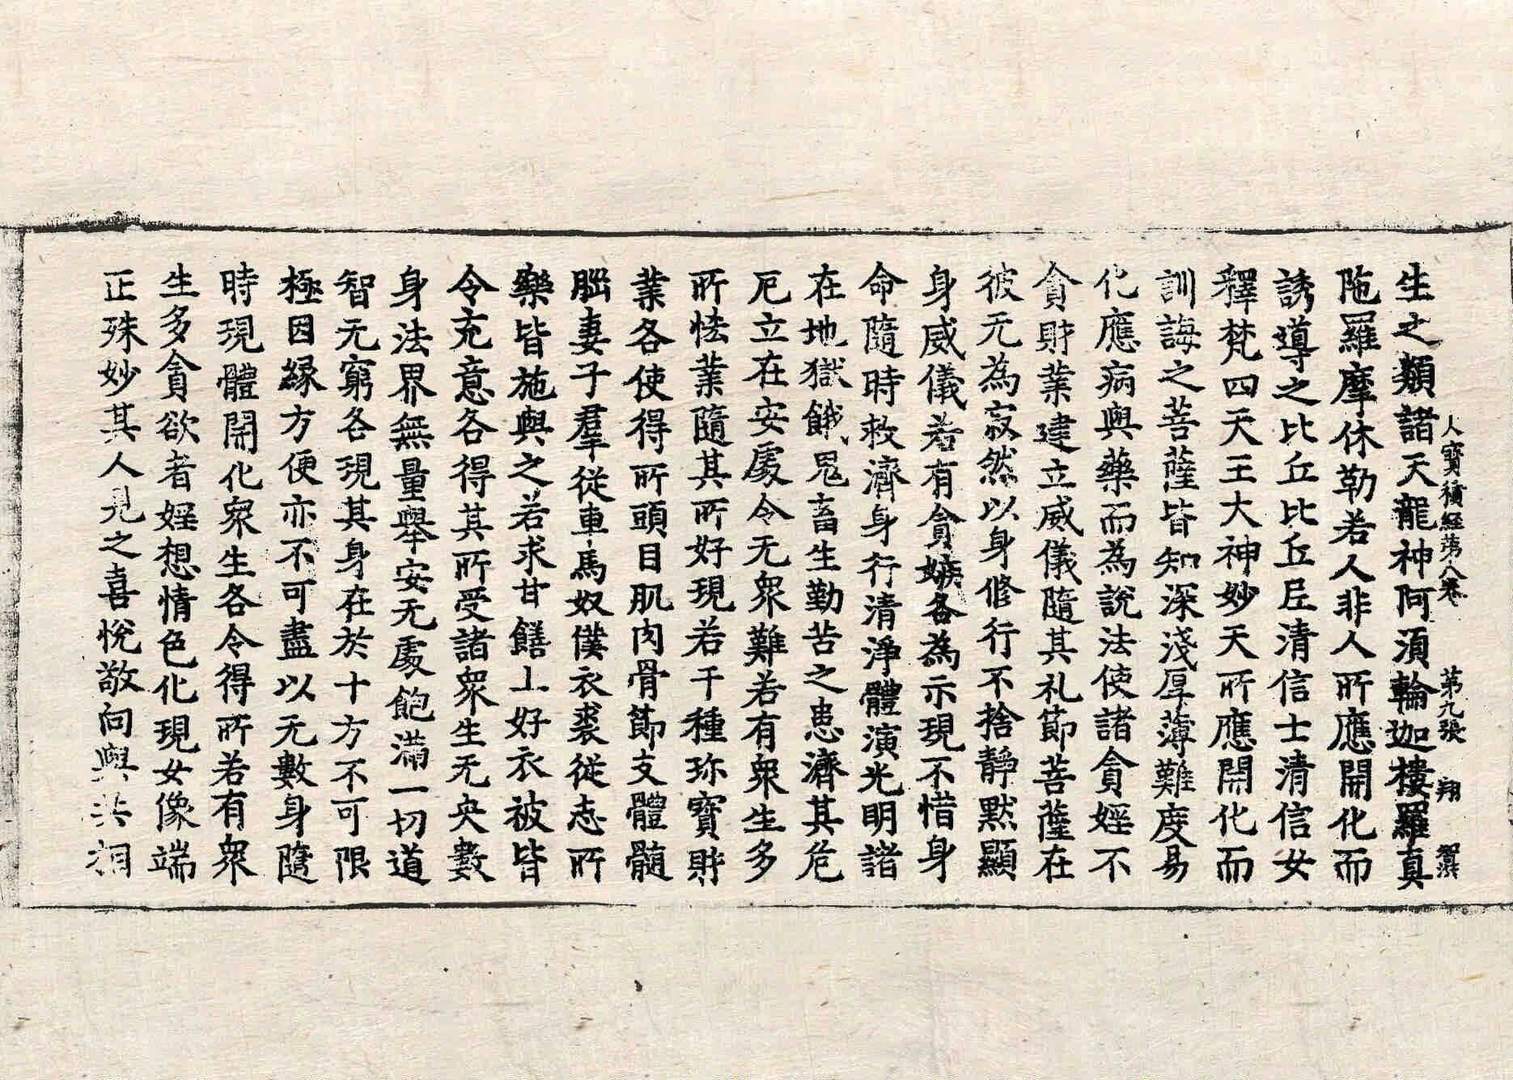 大寶積經第八卷 第九張 翔
生之類諸天龍神阿須輪迦樓羅真
陁羅摩休勒若人非人所應開化而
誘導之比丘比丘尼清信士清信女
釋梵四天王大神妙天所應開化而
訓誨之菩薩皆知深淺厚薄難度易
化應病與藥而為說法使諸貪婬不
貪財業建立威儀隨其礼節菩薩在
彼无為寂然以身修行不捨靜默顯
身威儀若有貪嫉各為示現不惜身
命隨時救濟身行清淨體演光明諸
在地獄餓鬼畜生勤苦之患濟其危
厄立在安處令无眾難若有眾生多
所悋業隨其所好現若干種珎寶財
業各使得所頭目肌肉骨節支體髓
𦠆妻子羣從車馬奴僕衣裘從志所
樂皆施與之若求甘饍上好衣被皆
令充意各得其所受諸眾生无央數
身法界無量舉安无處飽滿一切道
智无窮各現其身在於十方不可限
極因緣方便亦不可盡以无數身隨
時現體開化眾生各令得所若有眾
生多貪欲者婬想情色化現女像端
正殊妙其人見之喜悅敬向與共相